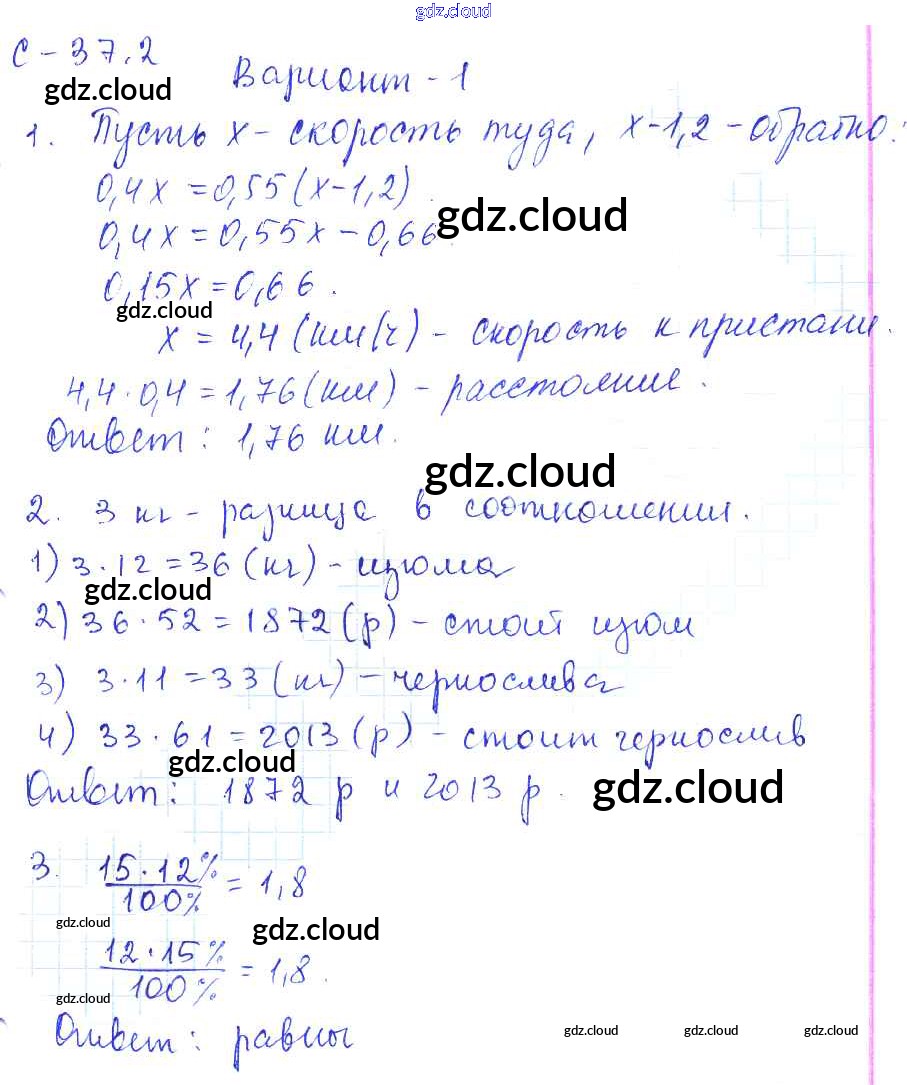 gdz.cloud
С-37.2
gdz.cloud
Вариант-1
1. Пусть х-скорость туда, х-1,2-обратно.
0,4х=0,55(х-1,2)
gdz.cloud
0,4х=0,55х-0,66.
0,15х=0,66.
gdz.cloud
х=4,4(км/ч)-скорость к пристани.
4,4·0,4=1,76(км)-расстояние.
Ответ: 1,76 км.
gdz.cloud
2. 3 кг-разница в соотношении.
1) 3·12=36(кг)-изюма
gdz.cloud
2) 36·52=1872(р)-стоит изюм
3) 3·11=33(кг)-чернослива
4) 33·61=2013(р)-стоит чернослив
gdz.cloud
Ответ: 1872 р и 2013 р.
gdz.cloud
3. 15·12%/100%=1,8
gdz.cloud
gdz.cloud
12·15%/100%=1,8.
gdz.cloud
Ответ: равны
gdz.cloud gdz.cloud gdz.cloud